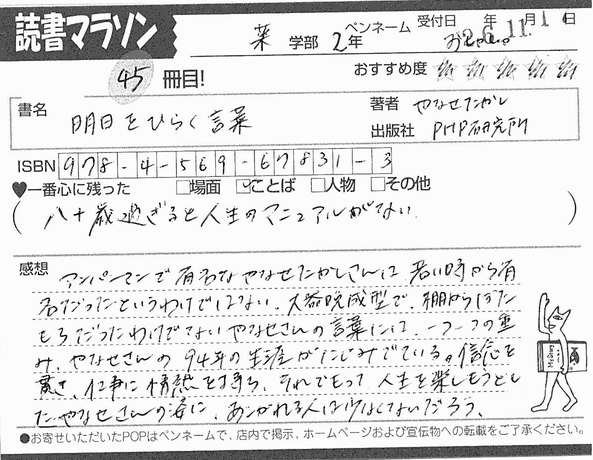 読書マラソン
薬 学部 2年 ペンネーム 受付日 年 月 日
26.11.1
45 冊目! おすすめ度
書名 明日をひらく言葉
著者 やなせたかし
出版社 PHP研究所
ISBN 978-4-569-67831-3
♥一番心に残った □場面 ☑ことば □人物 □その他
(八十歳過ぎると人生のマニュアルがない)
感想 アンパーマンで有名なやなせたかしさんは若い時から有
名だったというわけではない。大器晩成型で、棚からぼた
もちだったわけでないやなせさんの言葉には、一つ一つの重
み、やなせさんの94年の生涯がにじみでている。信念を
貫き、仕事に情熱を持ち、それでもって人生を楽しもうとし
たやなせさんの姿に、あこがれる人は少なくないだろう。
●お寄せいただいたPOPはペンネームで、店内で掲示、ホームページおよび宣伝物への転載をご了承ください。